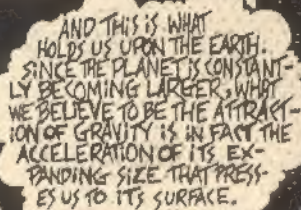 AND THIS IS WHAT
HOLDS US UPON THE EARTH.
SINCE THE PLANET IS CONSTANT-
LY BECOMING LARGER, WHAT
WE BELIEVE TO BE THE ATTRACT-
ION OF GRAVITY IS IN FACT THE
ACCELERATION OF ITS EX-
PANDING SIZE THAT PRESS-
ES US TO ITS SURFACE.